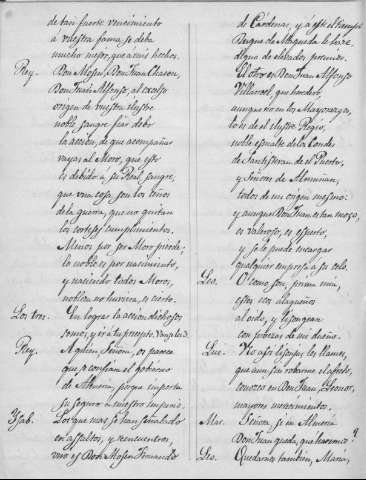 de tan fuerte vencimiento
à vuestra fama se deba
mucho mejor, que à mis hechos.
Rey. Don Mosen, Don Juan Chacon,
Don Juan Alfonso, al excelso
origen de vuestra ilustre
noble sangre fiar debo
la accion, de que acompañar
vayas al Moro, que este
es debido à su Real sangre,
que una cosa son los fueros
de la guerra, que no quitan
los corteses cumplimientos.
Menos por ser Moro pierde;
lo noble es por nacimiento,
y naciendo todos Moros,
nobles no huviera, es cierto.
Los tres. En lograr la accion dichosos
somos, y ir à tu precepto. Vanse los 3.
Rey. A quien, Señora, os parece
que se confiara el gobierno
de Almeria, porque importa
su seguro à nuestro imperio.
Ysab. Porque mas se han señalado
en assaltos, y reencuentros,
uno es Don Mosen Fernando
de Cardenas, y a este el tiempo
Duque de Maqueda le hace
digno de elevados premios.
El otro es Don Juan Alfonso
Villaroel, que heredero,
aunque no en los Mayorazgos,
lo es de el ilustre Regio,
noble esmalte de los Condes
de Santistevan de el Puerto,
y Señores de Almuñan,
todos de un origen mesmo:
y aunque Don Juan es tan mozo,
es valeroso, es experto,
y se le puede encargar
qualquier empresa a su celo.
Leo. O como son, prima mia,
esos ecos alagueños
al oido, y lisongean
con proezas de mi dueño.
Lue. No asi lisonjas los llames,
que aun sin robarme el afecto,
conozco en Don Juan, Leonor,
mayores merecimientos.
Mar. Señora, si en Almeria
Don Juan queda, què haremos?
Leo. Quedarnos tambien, Maria,